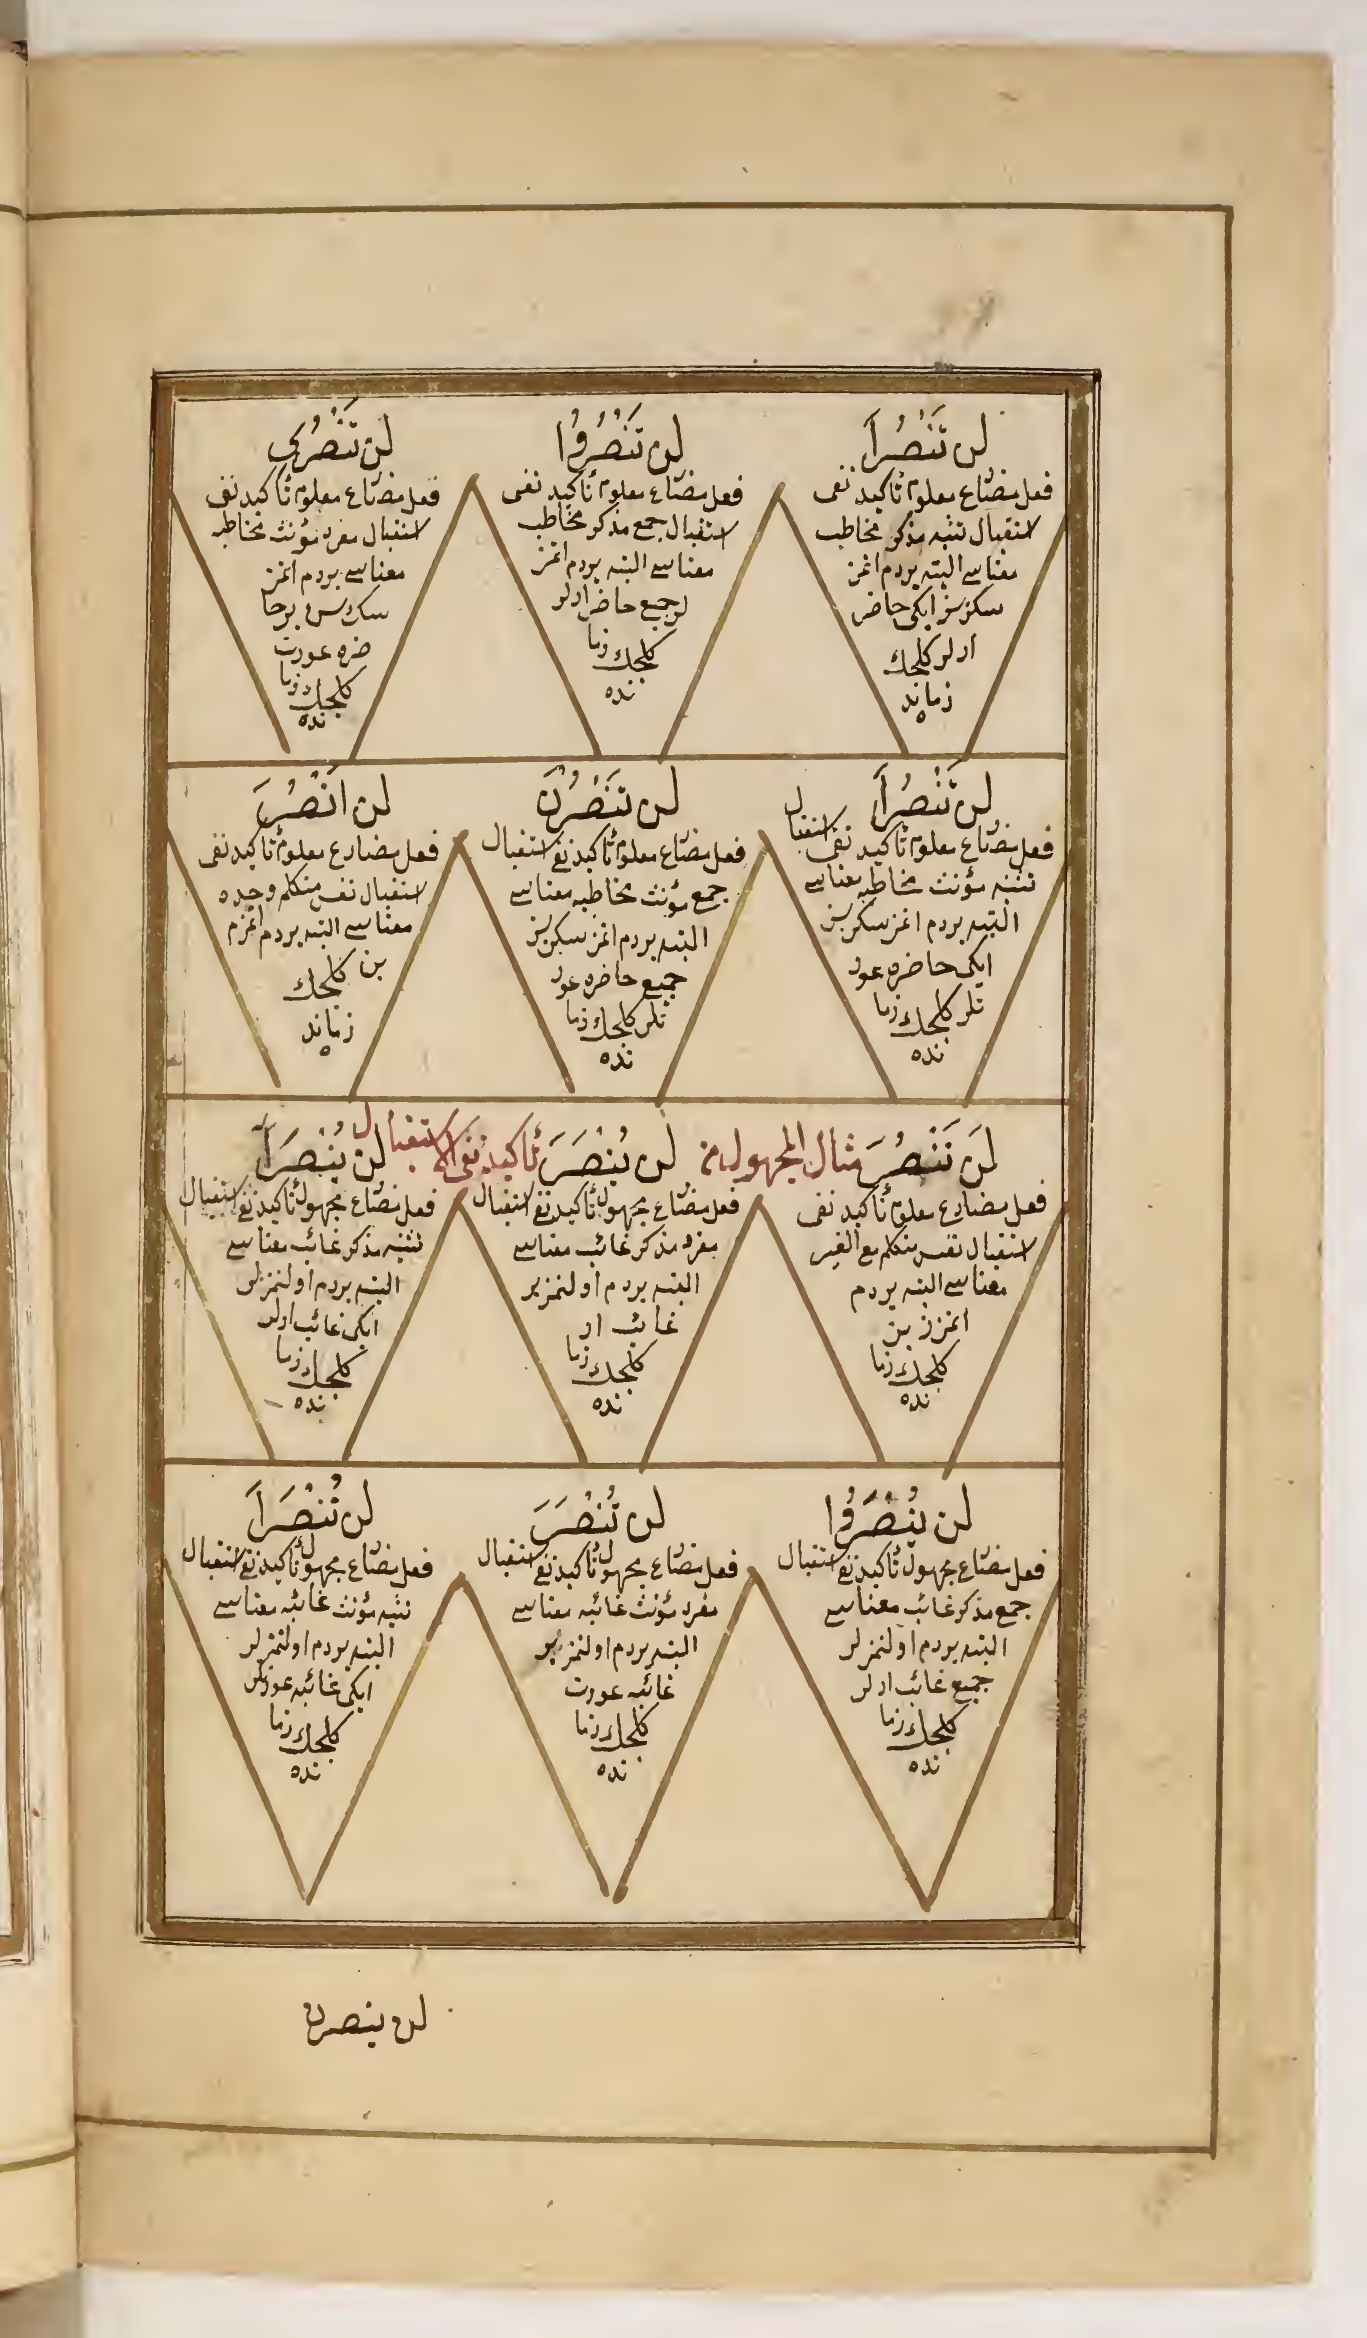 لن تَنْصُرَا
فعل مضارع معلوم تأكيد نفى
استقبال تثنيه مذكر مخاطب
معناسى البته يردم اتمز
سكز سز ايكى حاضر
ارلر كلجك
زمانده
لن تَنْصُرُوا
فعل مضارع معلوم تأكيد نفى
استقبال جمع مذكر مخاطب
معناسى البته يردم اتمز
جميع حاضر ارلر
كلجك زما
نده
لن تَنْصُرِى
فعل مضارع معلوم تأكيد نفى
استقبال مفرد مؤنث مخاطبه
معناسى يردم اتمز
سك سن برحا
ضره عورت
كلجك زما
نده
لن تَنْصُرَا
فعل مضارع معلوم تأكيد نفى استقبال
تثنيه مؤنث مخاطبه معناسى
البته يردم اتمز سكز سز
ايكى حاضره عور
تلر كلجك زما
نده
لن تَنْصُرْنَ
فعل مضارع معلوم تأكيد نفى استقبال
جمع مؤنث مخاطبه معناسى
البته يردم اتمز سكز سز
جميع حاضره عور
تلر كلجك زما
نده
لن اَنْصُرَ
فعل مضارع معلوم تأكيد نفى
استقبال نفس متكلم وحده
معناسى البته يردم اتمزم
بن كلجك
زمانده
لَن نَنْصُرَ
فعل مضارع معلوم تأكيد نفى
استقبال نفس متكلم مع الغير
معناسى البته يردم
اتمزز بز
كلجك زما
نده
مثال المجهول من تأكيد نفى الاستقبال
لن يُنْصَرَ
فعل مضارع مجهول تأكيد نفى استقبال
مفرد مذكر غائب معناسى
البته يردم اولنمز بر
غائب ار
كلجك زما
نده
لن يُنْصَرَا
فعل مضارع مجهول تأكيد نفى استقبال
تثنيه مذكر غائب معناسى
البته يردم اولنمزلر
ايكى غائب ارلر
كلجك زما
نده
لن يُنْصَرُوا
فعل مضارع مجهول تأكيد نفى استقبال
جمع مذكر غائب معناسى
البته يردم اولنمزلر
جميع غائب ارلر
كلجك زما
نده
لن تُنْصَرَ
فعل مضارع مجهول تأكيد نفى استقبال
مفرد مؤنث غائبه معناسى
البته يردم اولنمز بر
غائبه عورت
كلجك زما
نده
لن تُنْصَرَا
فعل مضارع مجهول تأكيد نفى استقبال
تثنيه مؤنث غائبه معناسى
البته يردم اولنمزلر
ايكى غائبه عورتلر
كلجك زما
نده
لن ينصرن